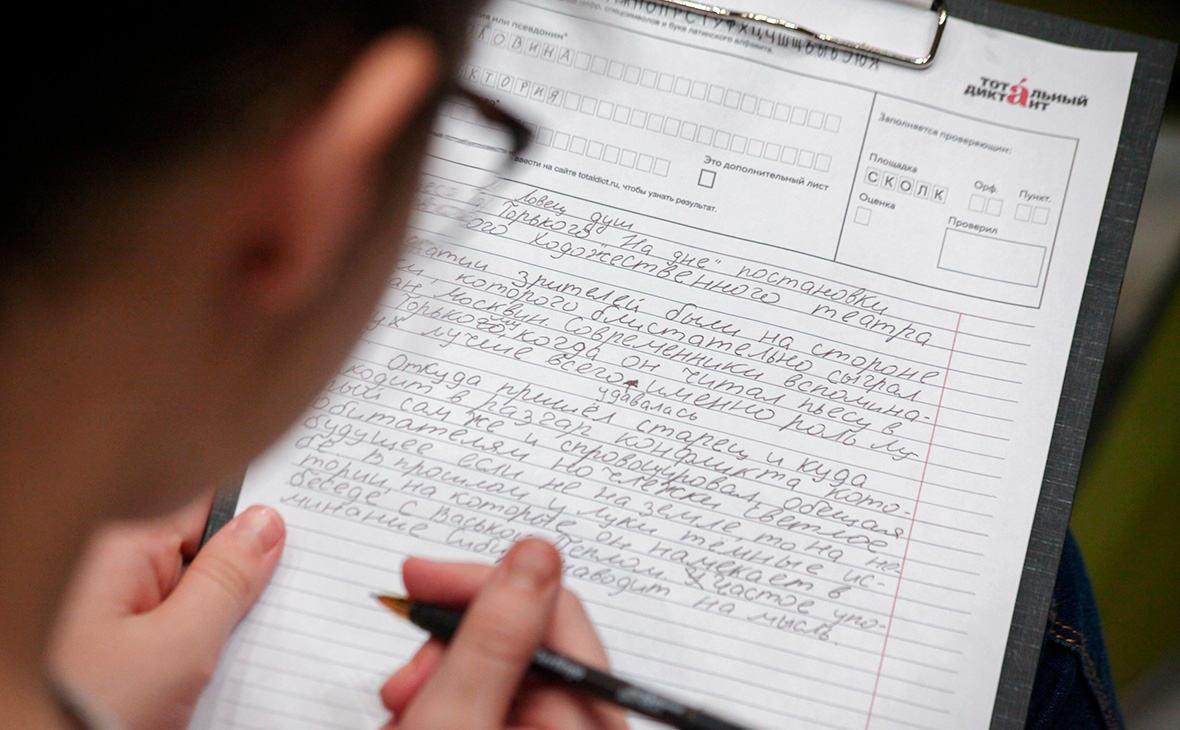 МНОПРСТУФХЦЧШЩЪЫЬЭЮЯ
спецсимволов и букв латинского алфавита.
или псевдоним*
ЛОВИНА
КТОРИЯ
Это дополнительный лист
ввести на сайте totaldict.ru, чтобы узнать результат.
тотальный
диктант
Заполняется проверяющим:
Площадка
Орф.
Пункт.
СКОЛК
Оценка
Проверил
Ловец душ
Горького "На дне" постановки
ого художественного театра
зрителей были на стороне
которого блистательно сыграл
Москвин. Современники вспомина-
Горького, когда он читал пьесу в
ух лучше всего именно роль Лу-
удавалась
Откуда пришёл старец и куда
ходит в разгар конфликта кото-
рый сам же и спровоцировал, обещая
обитателям ночлежки светлое
будущее если не на земле, то на не-
бе. В прошлом у Луки тёмные ис-
тории, на которое он намекает в
беседе с Васькой Пеплом. Частое упо-
минание Сиби наводит на мысль